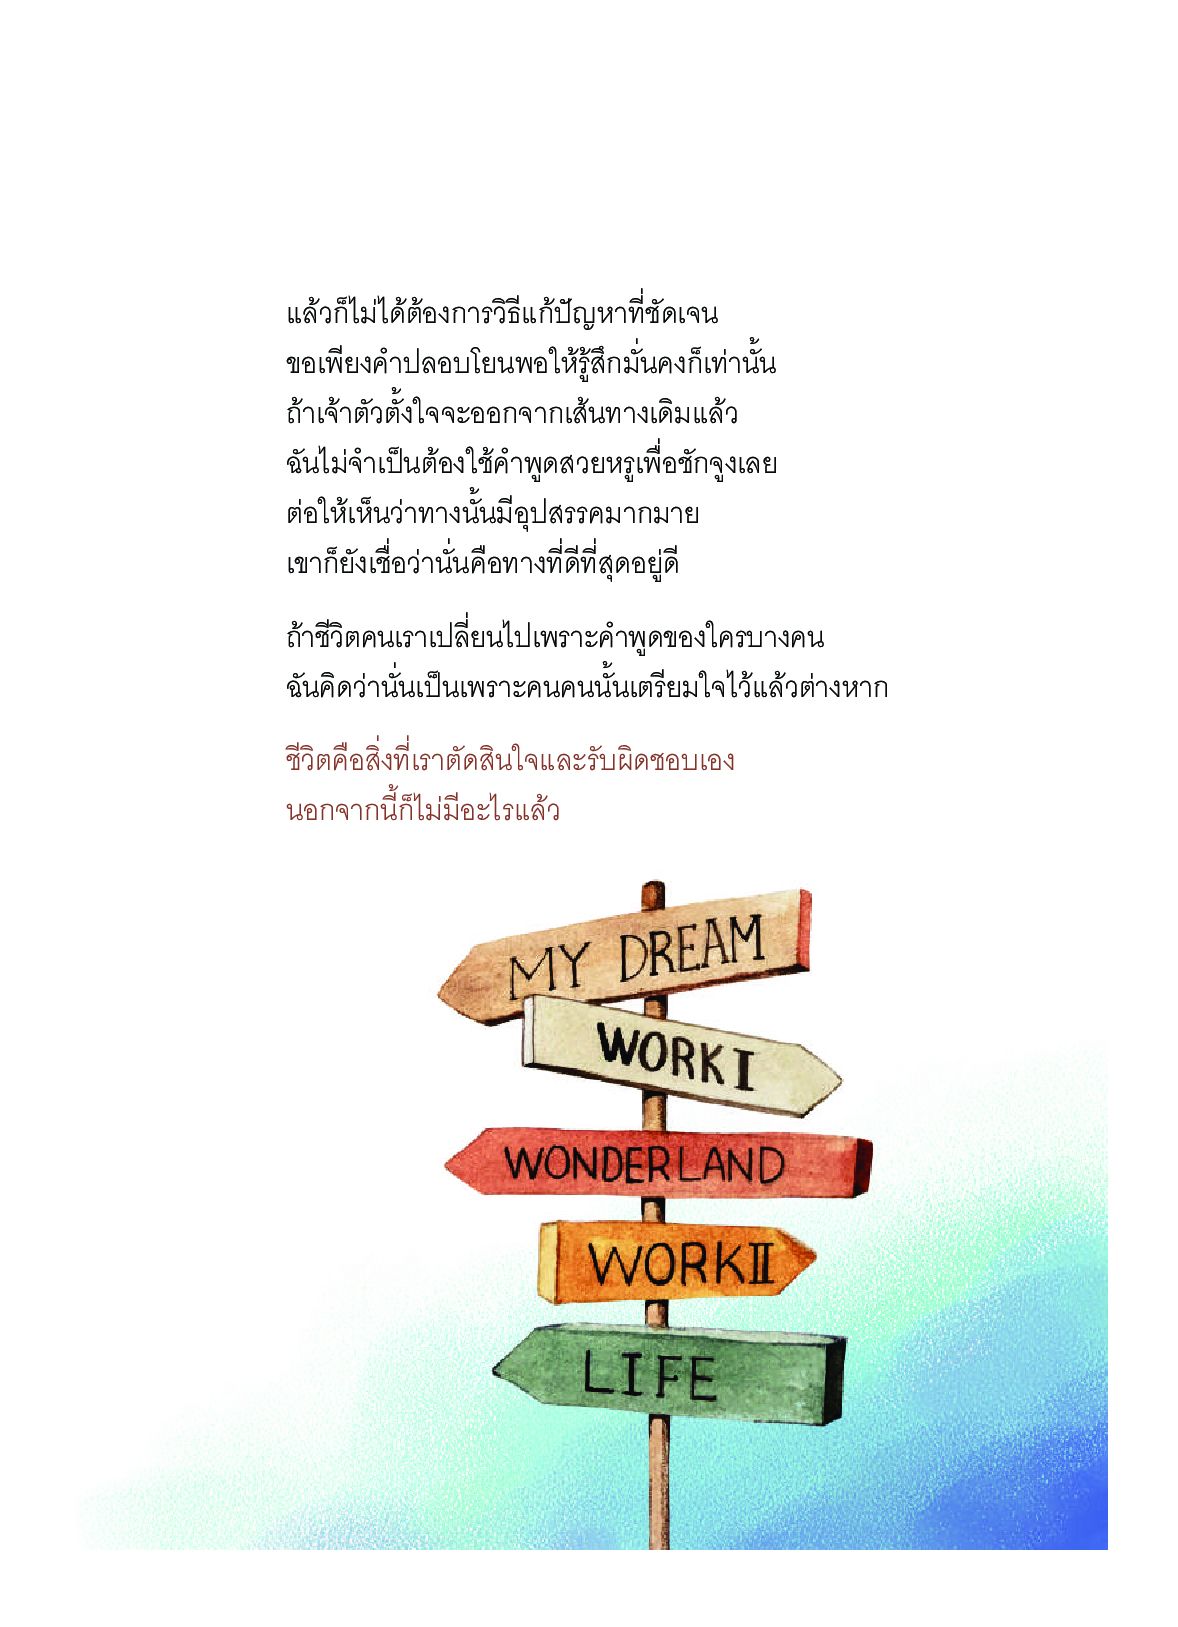 แล้วก็ไม่ได้ต้องการวิธีแก้ปัญหาที่ชัดเจน
ขอเพียงคำปลอบโยนพอให้รู้สึกมั่นคงก็เท่านั้น
ถ้าเจ้าตัวตั้งใจจะออกจากเส้นทางเดิมแล้ว
ฉันไม่จำเป็นต้องใช้คำพูดสวยหรูเพื่อชักจูงเลย
ต่อให้เห็นว่าทางนั้นมีอุปสรรคมากมาย
เขาก็ยังเชื่อว่านั่นคือทางที่ดีที่สุดอยู่ดี
ถ้าชีวิตคนเราเปลี่ยนไปเพราะคำพูดของใครบางคน
ฉันคิดว่านั่นเป็นเพราะคนคนนั้นเตรียมใจไว้แล้วต่างหาก
ชีวิตคือสิ่งที่เราตัดสินใจและรับผิดชอบเอง
นอกจากนี้ก็ไม่มีอะไรแล้ว
MY DREAM
WORK I
WONDERLAND
WORK II
LIFE